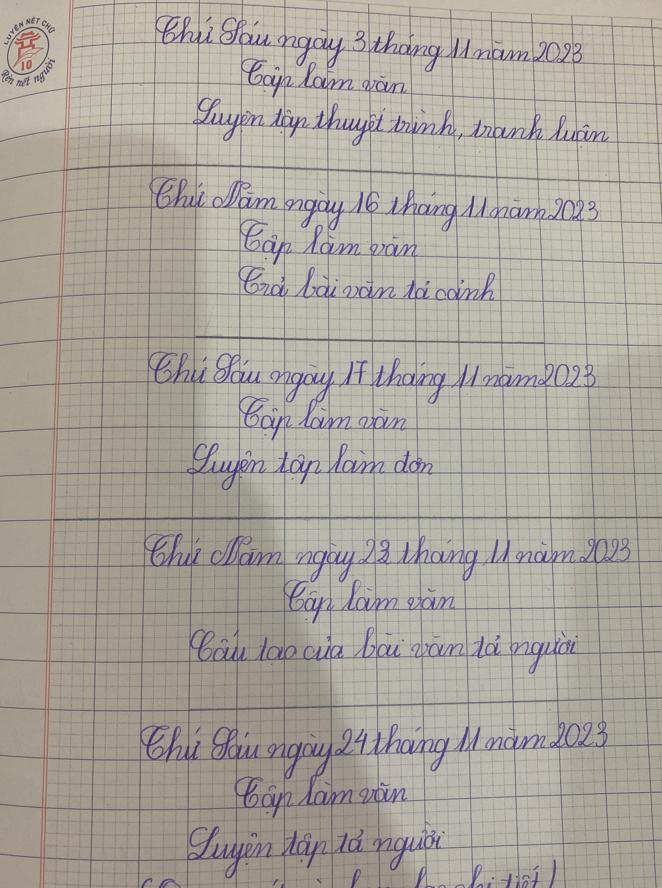 LUYỆN NÉT CHỮ
10
Rèn nết người
Thứ Sáu ngày 3 tháng 11 năm 2023
Tập làm văn
Luyện tập thuyết trình, tranh luận
Thứ Năm ngày 16 tháng 11 năm 2023
Tập làm văn
Trả bài văn tả cảnh
Thứ Sáu ngày 17 tháng 11 năm 2023
Tập làm văn
Luyện tập làm đơn
Thứ Năm ngày 23 tháng 11 năm 2023
Tập làm văn
Cấu tạo của bài văn tả người
Thứ Sáu ngày 24 tháng 11 năm 2023
Tập làm văn
Luyện tập tả người
chi tiết)